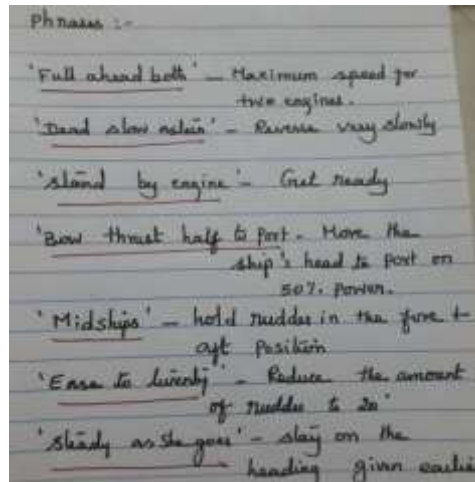 Phrases :-
'Full ahead both' – Maximum speed for
two engines.
'Dead slow astern' – Reverse very slowly
'stand by engine' – Get ready
'Bow thrust half to port. – Move the
ship's head to port on
50% power.
'Midships' – hold rudder in the fore +
aft position
'Ease to twenty' – Reduce the amount
of rudder to 20°
'steady as she goes' – stay on the
heading given earlier